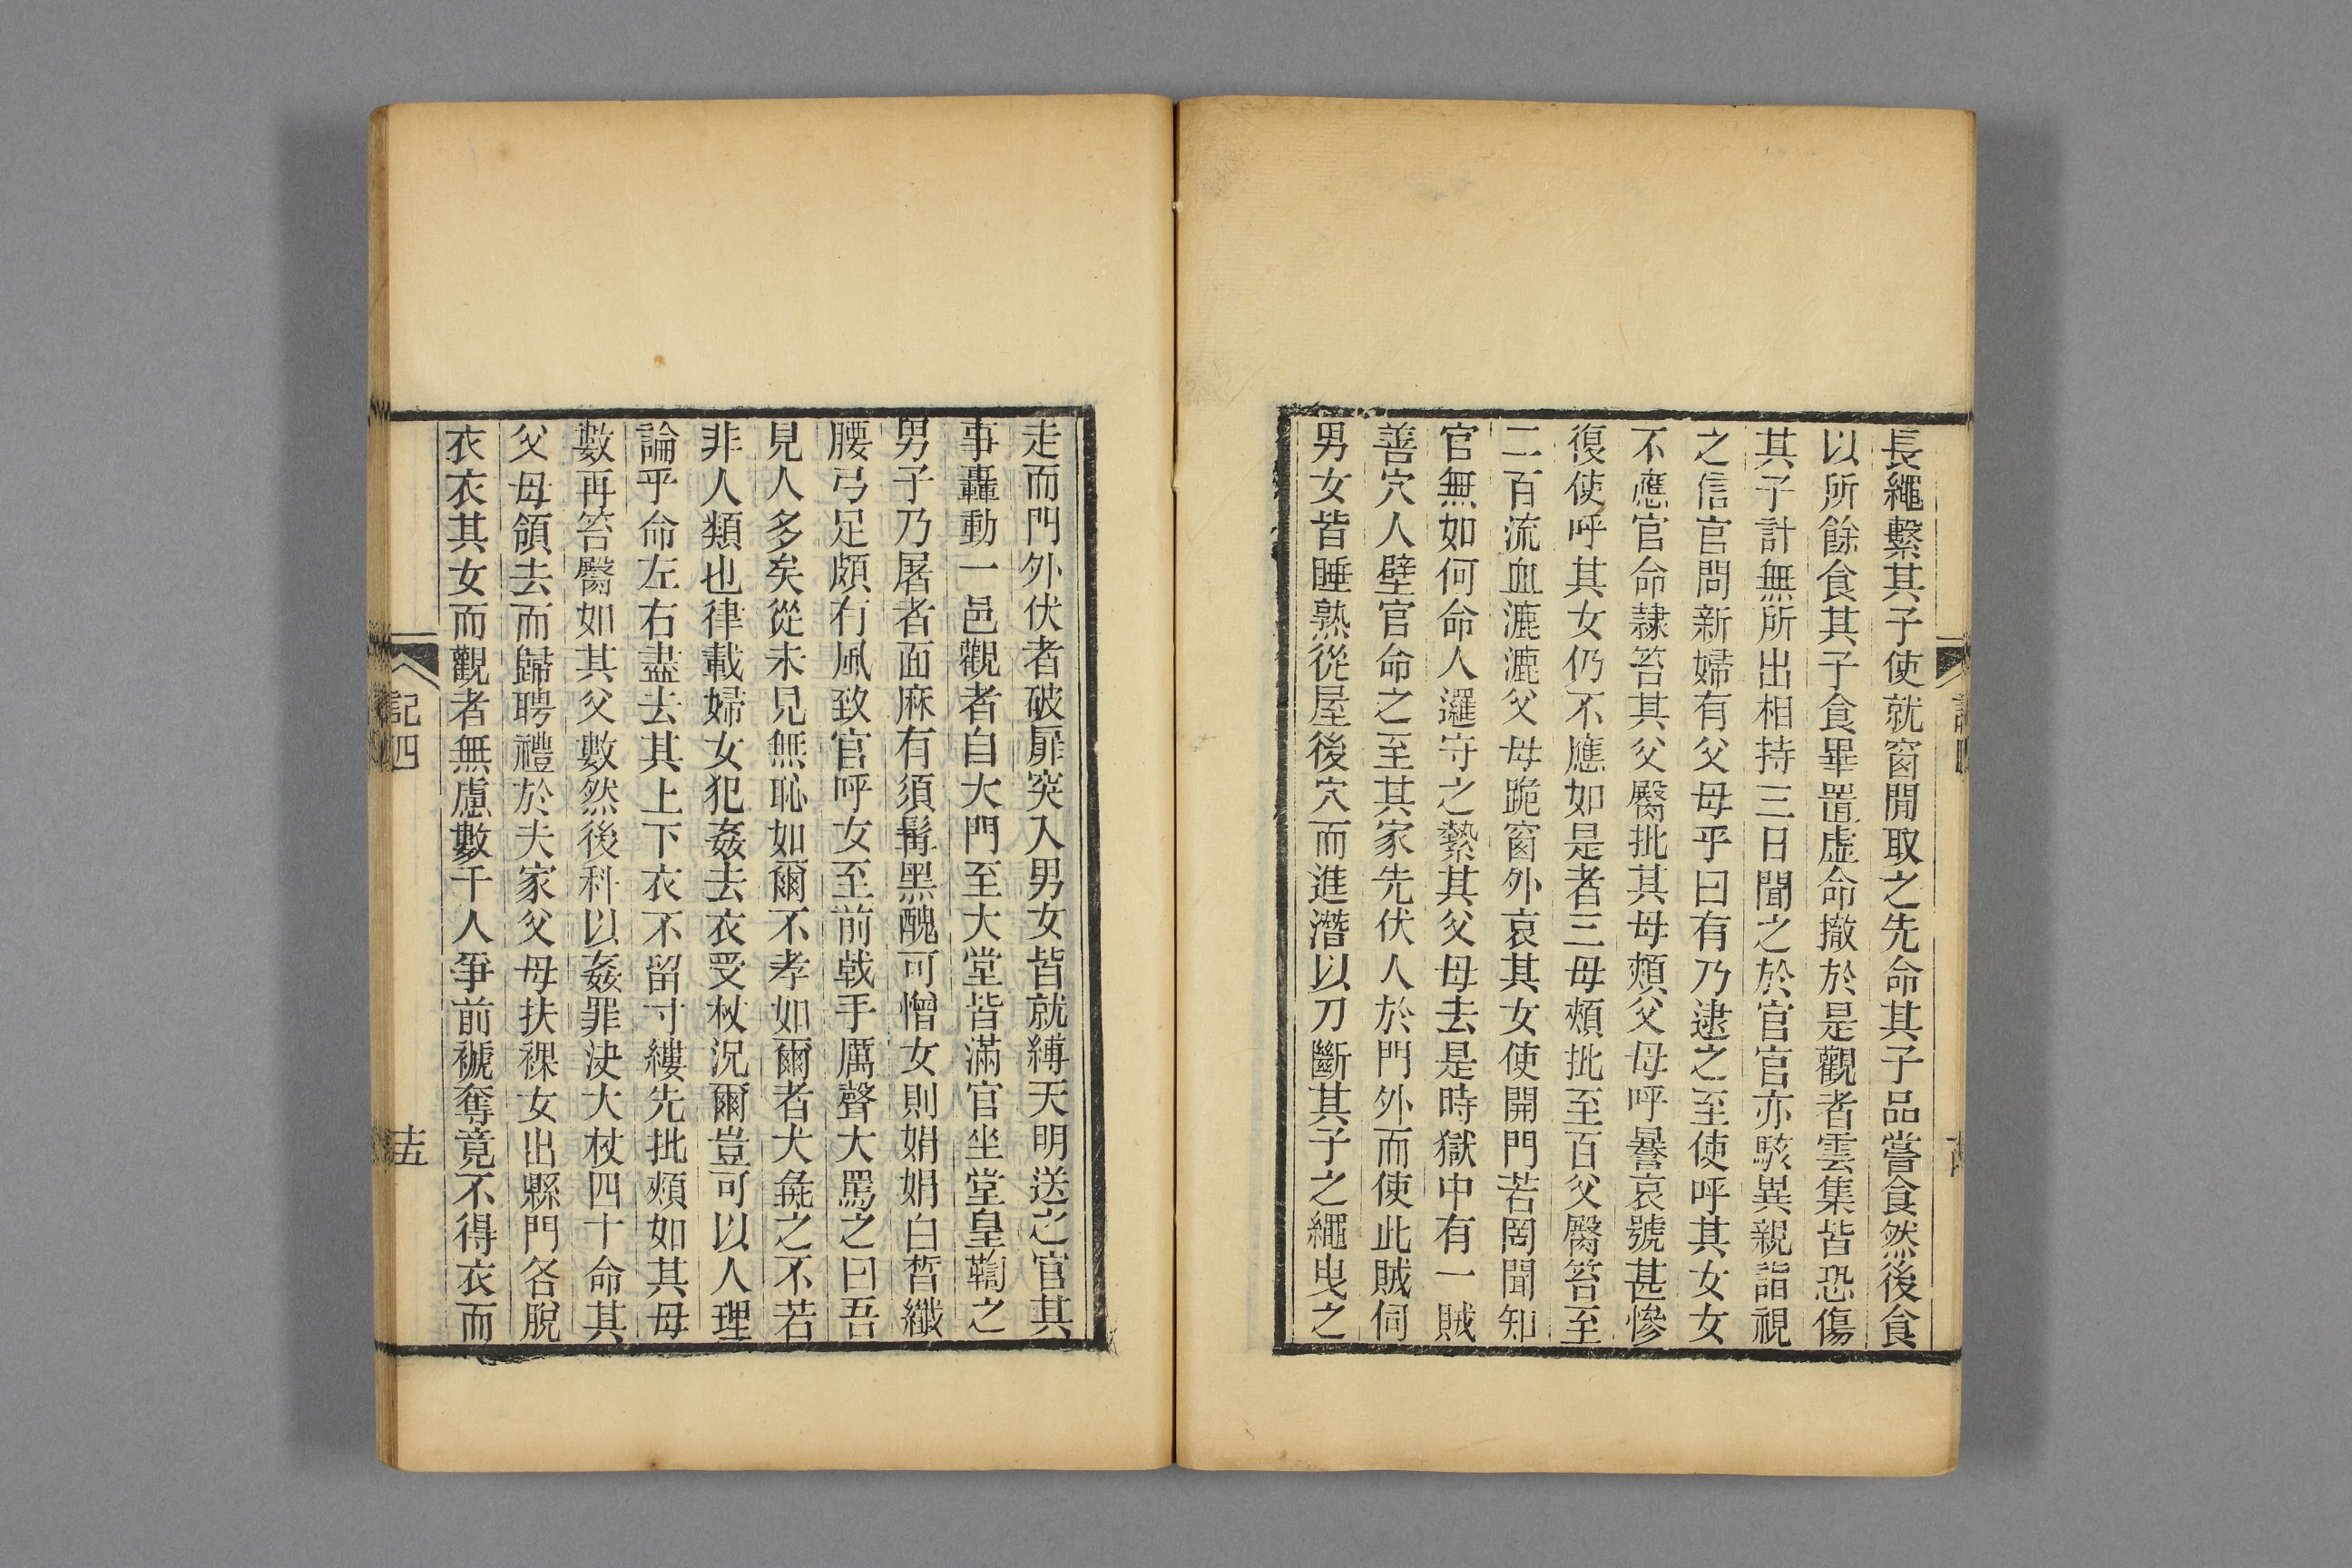 長繩繫其子使就窗閒取之先命其子品嘗食然後食
以所餘食其子食畢置虛命撤於是觀者雲集皆恐傷
其子計無所出相持三日聞之於官官亦駭異親詣視
之信官問新婦有父母乎曰有乃逮之至使呼其女女
不應官命隷笞其父臀批其母頰父母呼暑哀號甚慘
復使呼其女仍不應如是者三母頰批至百父臀笞至
二百流血漉漉父母跪窗外哀其女使開門若罔聞知
官無如何命人邏守之縶其父母去是時獄中有一賊
善穴人壁官命之至其家先伏人於門外而使此賊伺
男女皆睡熟從屋後穴而進潛以刀斷其子之繩曳之
走而門外伏者破扉突入男女皆就縛天明送之官其
事轟動一邑觀者自大門至大堂皆滿官坐堂皇鞫之
男子乃屠者面麻有須髯黑醜可憎女則娟娟白皙纖
腰弓足頗有風致官呼女至前戟手厲聲大罵之曰吾
見人多矣從未見無恥如爾不孝如爾者犬彘之不若
非人類也律載婦女犯姦去衣受杖況爾豈可以人理
論乎命左右盡去其上下衣不留寸縷先批頰如其母
數再笞臀如其父數然後科以姦罪決大杖四十命其
父母領去而歸聘禮於夫家父母扶裸女出縣門各脫
衣衣其女而觀者無慮數千人爭前褫奪竟不得衣而
記四
十五